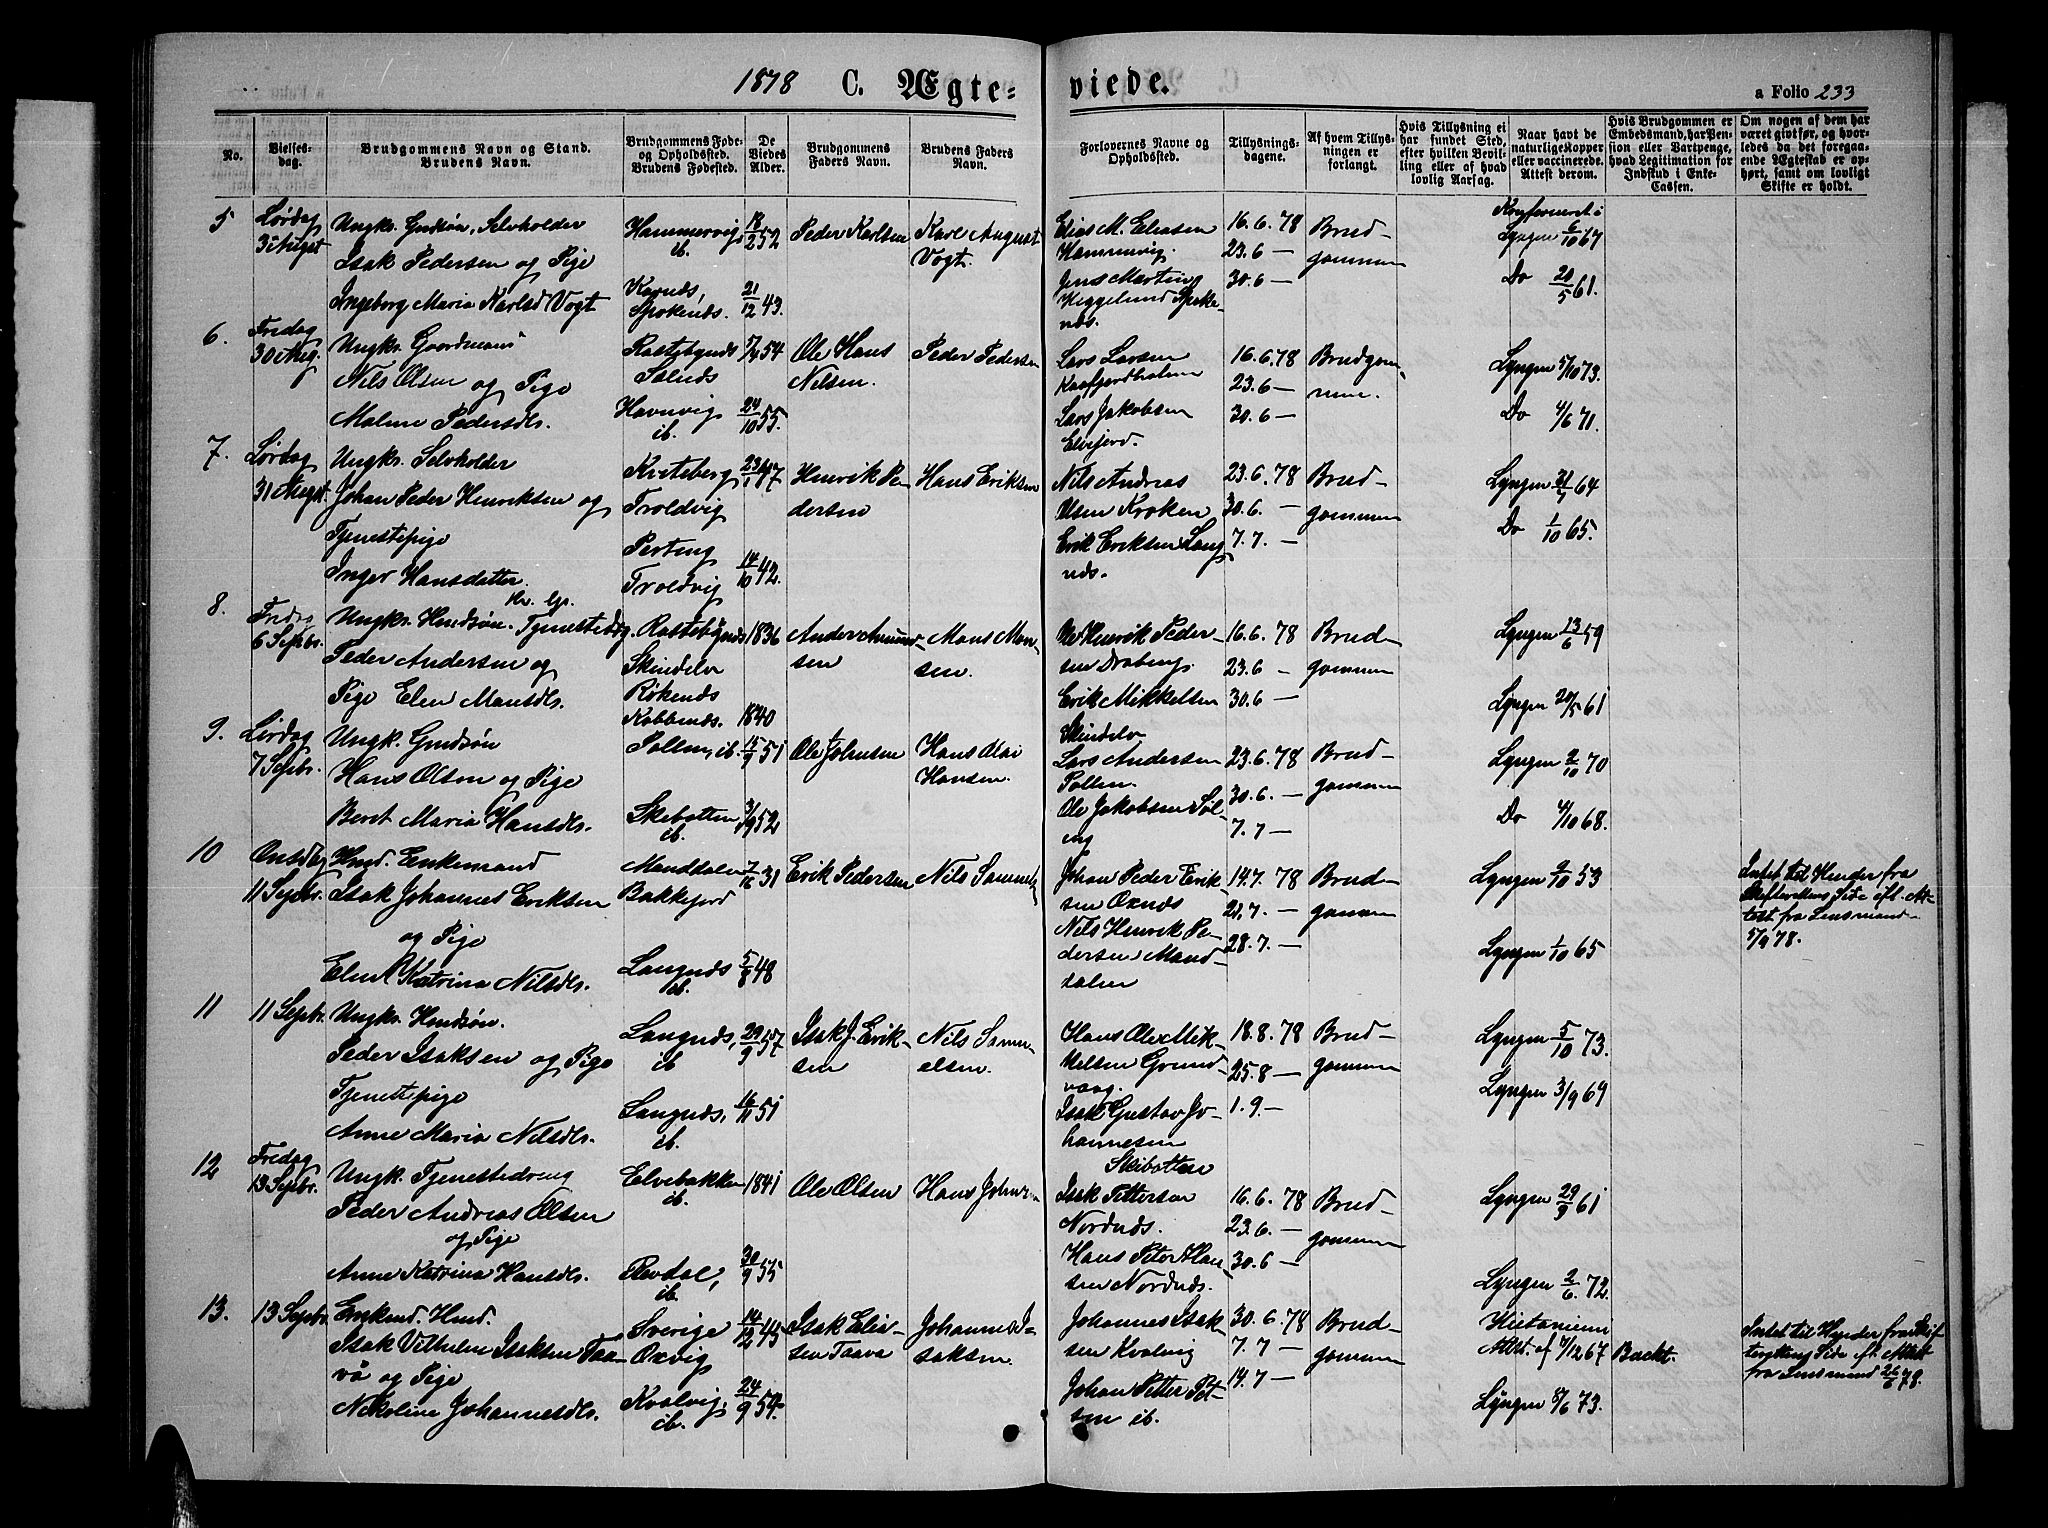 1878 C. Ægte-
viede.
a Folio 233
No.
Vielses-
dag.
Brudgommens Navn og Stand.
Brudens Navn.
Brudgommens Føde-
og Opholdssted.
Brudens Fødested.
De
Viedes
Alder.
Brudgommens
Faders Navn.
Brudens Faders
Navn.
Forlovernes Navne og
Opholdssted.
Tillysnings-
dagene.
Af hvem Tillys-
ningen er
forlangt.
Hvis Tillysning ei
har fundet Sted,
efter hvilken Bevil-
ling eller af hvad
lovlig Aarsag.
Naar havt de
naturlige Kopper
eller vaccinerede.
Attest derom.
Hvis Brudgommen er
Embedsmand, har Pen-
sion eller Vartpenge,
hvad Legitimation for
Indskud i Enke-
Cassen.
Om nogen af dem har
været givt før, og hvor-
ledes da det foregaa-
ende Ægteskab er op-
hørt, samt om lovligt
Skifte er holdt.
5
Lørdag
3
Ungkr. Gudsøn, Selvholder
Isak Pedersen og Pige
Ingeborg Maria Karlsd Vogt
Hammervig
ib.
Karnæs,
Spokenæs.
18/2 52
21/12 43.
Peder Karlsen
Karl August
Vogt.
Elias M. Eliasen
Hammervig.
Jens Martin
Heggelund Spoke-
næs.
16.6.78
23.6 —
30.6 —
Brud-
gommen
Konfirmeret i
Lyngen 6/10 67
Do 20/5 61.
6.
Fredag
30 Aug.
Ungkr. Gaardmand
Nils Olsen og Pige
Malene Pedersdr.
Rastebynæs
Havnvig
ib.
7/4 54
24/10 55.
Ole Hans
Nilsen.
Peder Pedersen
Lars Larsen
Kaafjordholmen
Lars Jakobsen
Elvejord.
16.6.78
23.6 —
30.6 —
Brudgom-
men.
Lyngen 5/10 73.
Do 4/6 71.
7.
Lørdag
31 Augst.
Ungkr. Selvholder
Johan Peder Henriksen og
Tjenestepige
Inger Hansdatter.
Kviteberg
Troldvig
Perteng
Troldvig
23/1 47
14/10 42.
Henrik Pe-
dersen
Hans Eriksen
Nils Andreas
Olsen Kroken
Erik Eriksen Lang-
næs.
23.6.78
30.6. —
7.7. —
Brud-
gommen
Lyngen 64
Do 1/10 65.
8.
Fredag
6 Septbr.
Ungkr. Huusm. Tjenestedrg.
Peder Andersen og
Pige Elen Mansdr.
Rastebynæs
Skindelv
Røkenæs
Kobbenæs.
1836
1840
Mans Man-
sen.
Ole Henrik Peder-
sen Draberg.
Erik Mikkelsen
Skindelv
16.6.78
23.6 —
30.6 —
Brud-
gommen
Lyngen 13/6 59
Lyngen 20/5 61
9.
Lørdag
7 Septbr.
Ungk. Gmdsøn
Hans Olsen og Pige
Beret Maria Hansdr.
Pollen, ib.
Skibotten
ib.
15/9 51
3/9 52
Ole Johnsen
Hans Olai
Hansen.
Lars Andersen
Pollen.
Ole Jakobsen Søl-
eng
23.6.78
30.6. —
7.7 —
Brud-
gommen
Lyngen 2/10 70
Do 4/10 68.
10
Onsdag
11 Septbr.
Hmd. Enkemand
Isak Johannes Eriksen
og Pige
Elen Katrina Nilsdr.
Manddalen
Bakkejord
Langnæs
ib.
31
5/8 48
Erik Pedersen
Nils Samuels
Johan Peder Erik-
sen Oxnæs
Nils Henrik Pe-
dersen Mand-
dalen
14.7.78
21.7. —
28.7. —
Brud-
gommen
Lyngen 2/10 53
Lyngen 1/10 65
Intet til Hinder fra
Skifterettens Side ifl. At-
test fra Lensmand
5/9 78.
11
11 Septbr.
Ungkr. Hmdsøn.
Peder Isaksen og Pige
Tjenestepige
Anne Maria Nilsdr.
Langnæs,
ib
Langnæs,
ib.
29/9 57
16/11 51
Isak J. Erik-
sen
Nils Samu-
elsen.
Hans Ole Mik-
kelsen Grund-
vaag.
Isak Gustav Jo-
hannesen
Skibotten
18.8.78
25.8 —
1.9. —
Brud-
gommen
Lyngen 5/10 73.
Lyngen 3/9 69
12
Fredag
13 Septbr.
Ungk. Tjenestedreng
Peder Andreas Olsen
og Pige
Anne Katrina Hansdr.
Elvebakken
ib.
Revdal,
ib.
1841
30/9 55
Ole Olsen
Hans Johnsen
Isak Pettersen
Nordnæs.
Hans Peter Han-
sen Nordnæs.
16.6.78
23.6. —
30.6 —
Brud-
gommen
Lyngen 29/9 61
Lyngen 2/6 72.
13.
13 Septbr.
Enkmd. Hmd.
Isak Vilhelm Isaksen Taa-
vå og Pige
Nikoline Johannesdr.
Sverige
Oxvig
Kvalvig
ib.
14/12 45
24/9 54.
Isak Elia-
sen Taava
Johannes I-
saksen.
Johannes Isak-
sen Kvalvig
Johan Petter Pet-
sen ib.
30.6.78
7.7 —
14.7 —
Brud-
gommen
Hietaniemi
Attst. af 7/12 67
Lyngen 8/6 73.
Intet til Hinder fra Skif-
terettens Side ifl. Attest
fra Lensmand 26/6 78.